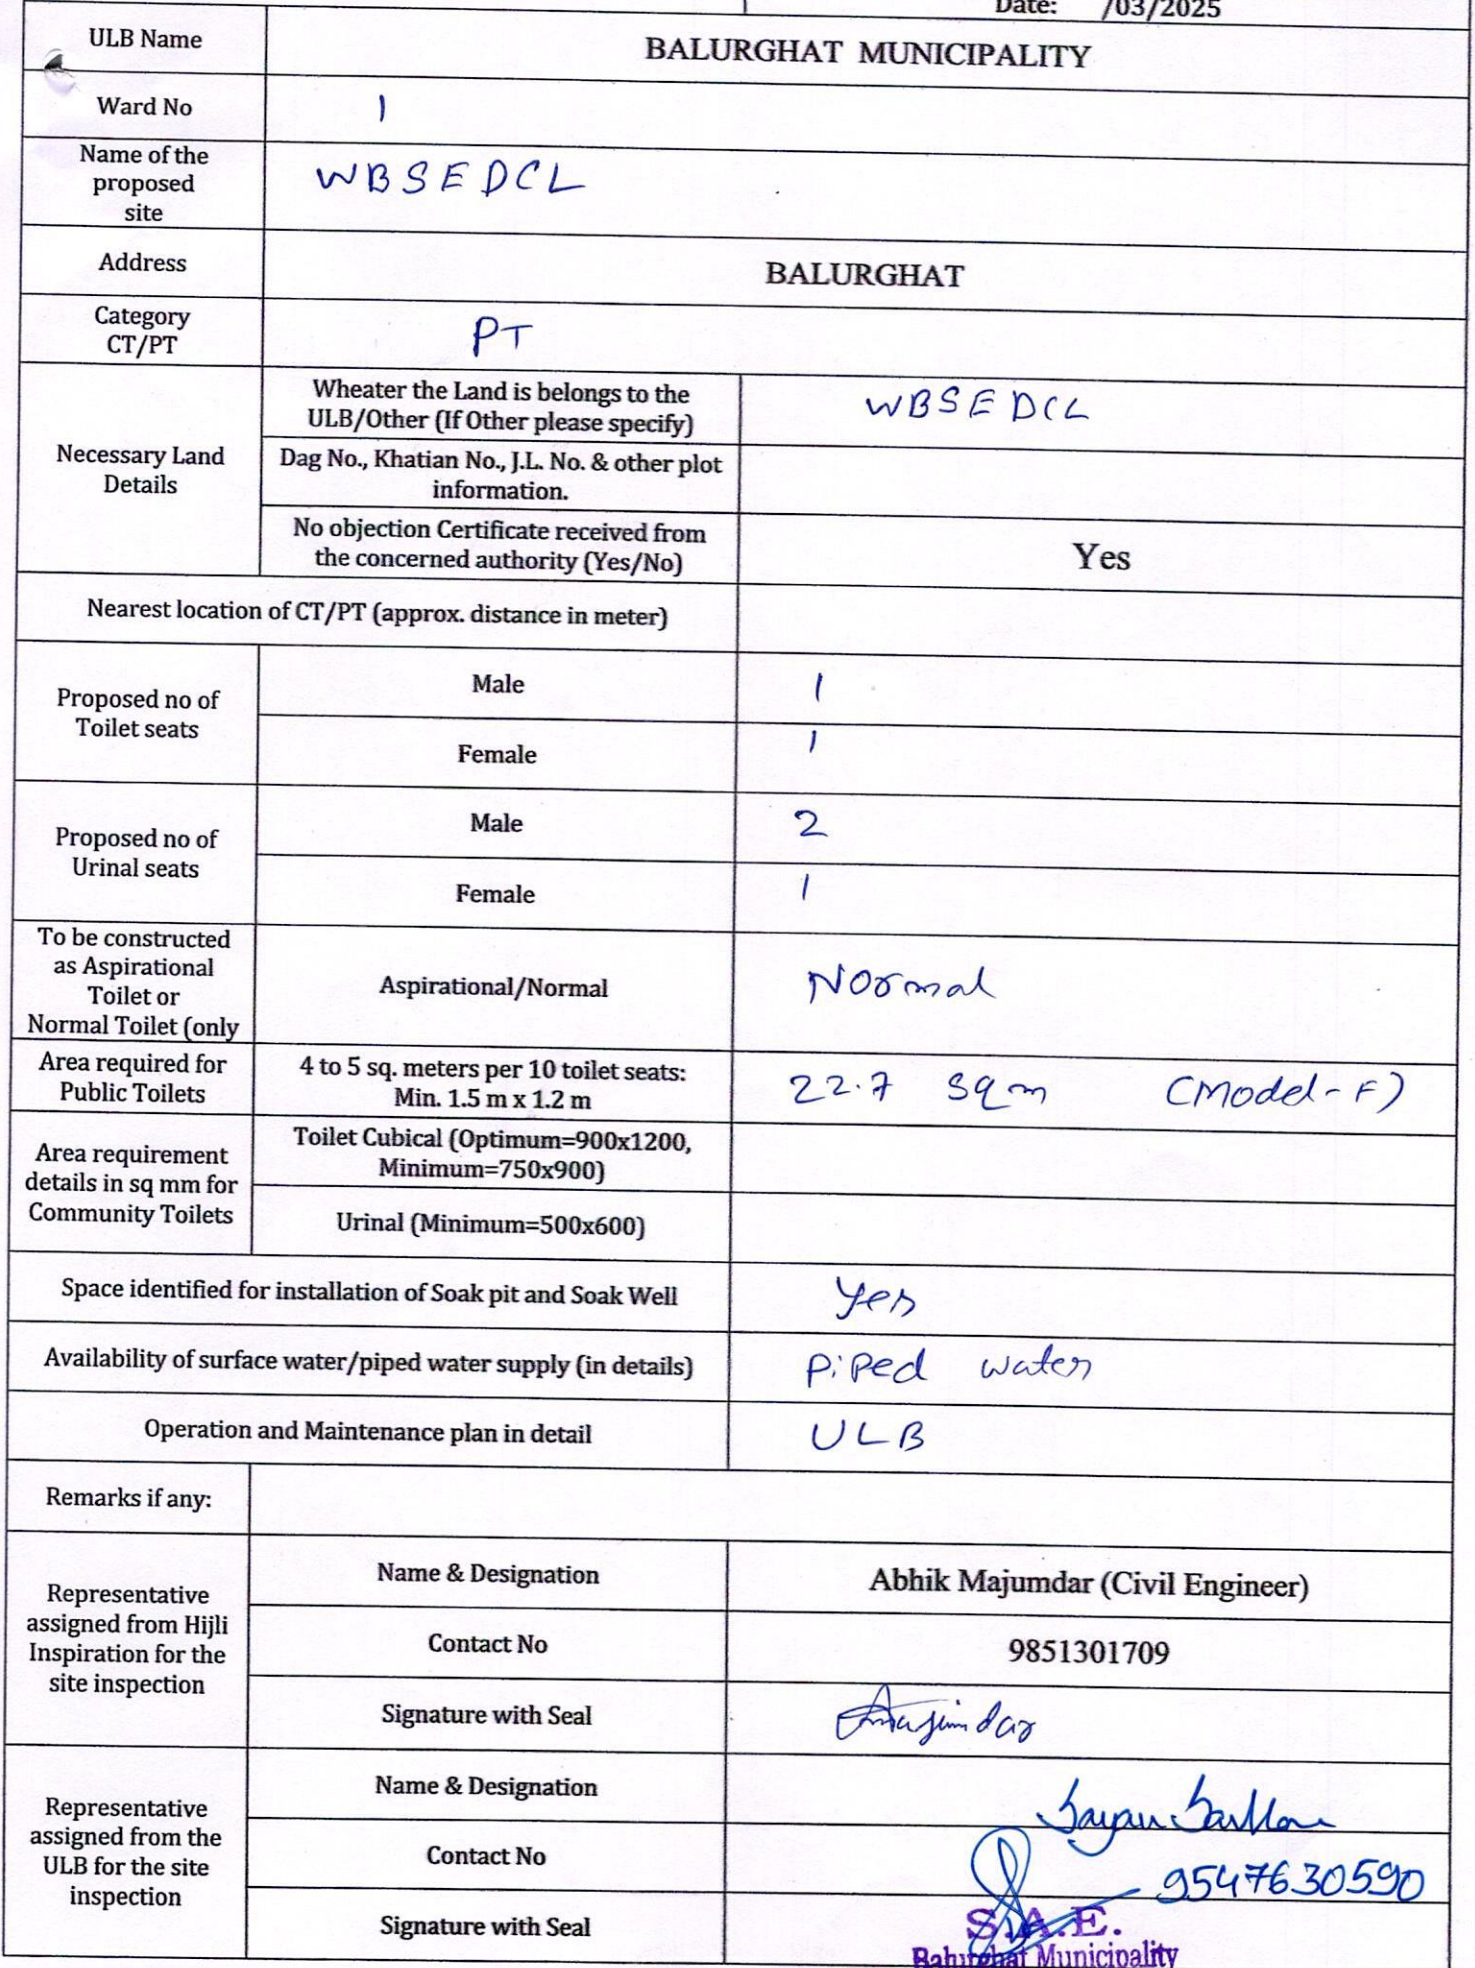 Date: /03/2025
ULB Name
BALURGHAT MUNICIPALITY
Ward No
1
Name of the
proposed
site
WBSEDCL
Address
BALURGHAT
Category
CT/PT
PT
Necessary Land
Details
Wheater the Land is belongs to the
ULB/Other (If Other please specify)
WBSEDCL
Dag No., Khatian No., J.L. No. & other plot
information.
No objection Certificate received from
the concerned authority (Yes/No)
Yes
Nearest location of CT/PT (approx. distance in meter)
Proposed no of
Toilet seats
Male
1
Female
1
Proposed no of
Urinal seats
Male
2
Female
1
To be constructed
as Aspirational
Toilet or
Normal Toilet (only
Aspirational/Normal
Normal
Area required for
Public Toilets
4 to 5 sq. meters per 10 toilet seats:
Min. 1.5 m x 1.2 m
22.7 sqm (Model-F)
Area requirement
details in sq mm for
Community Toilets
Toilet Cubical (Optimum=900x1200,
Minimum=750x900)
Urinal (Minimum=500x600)
Space identified for installation of Soak pit and Soak Well
Yes
Availability of surface water/piped water supply (in details)
Piped water
Operation and Maintenance plan in detail
ULB
Remarks if any:
Representative
assigned from Hijli
Inspiration for the
site inspection
Name & Designation
Abhik Majumdar (Civil Engineer)
Contact No
9851301709
Signature with Seal
AMajumdar
Representative
assigned from the
ULB for the site
inspection
Name & Designation
Sayan
Contact No
9547630590
Signature with Seal
S.A.E.
Balurghat Municipality